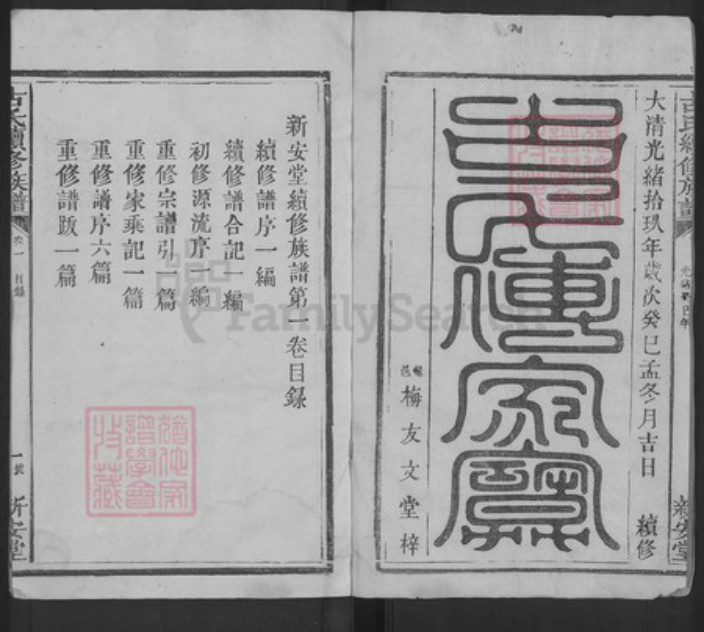 大清光緒拾玖年歲次癸巳孟冬月吉日 續修
古氏傳家寶
邑 梅友文堂梓
古氏續修族譜
光緒癸巳年
新安堂
新安堂續修族譜第一卷目錄
續修譜序一編
續修譜合記一編
初修源流序一編
重修宗譜引一篇
重修家乘記一篇
重修譜序六篇
重修譜跋一篇
古氏續修族譜
卷一 目錄
一號
新安堂
FamilySearch
譜學會
特藏
譜學會
特藏